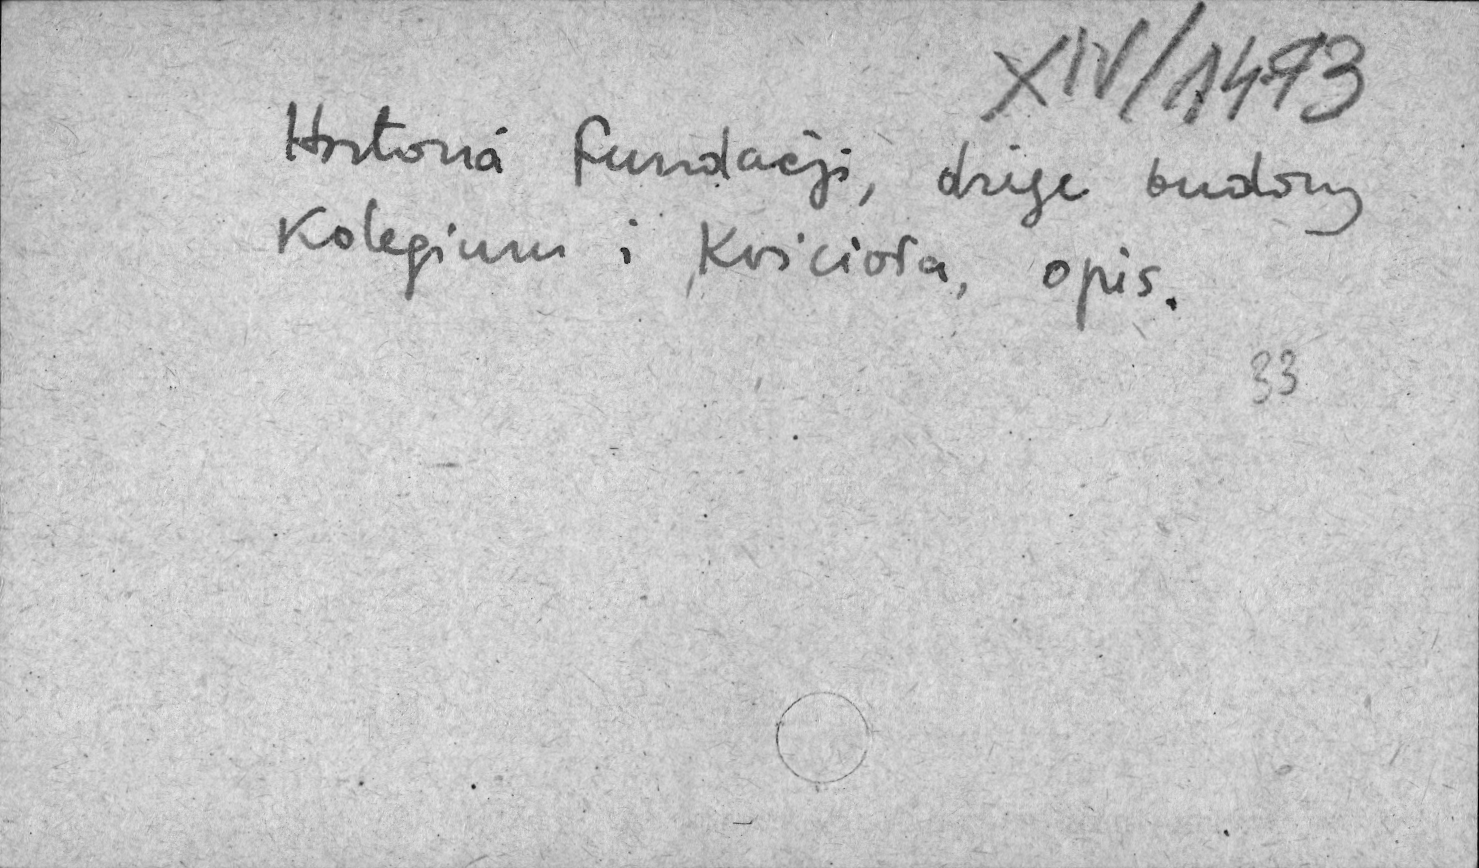 XIV/1473
Historia fundacji, dzieje budowy
Kolegium i Kościoła, opis.
33